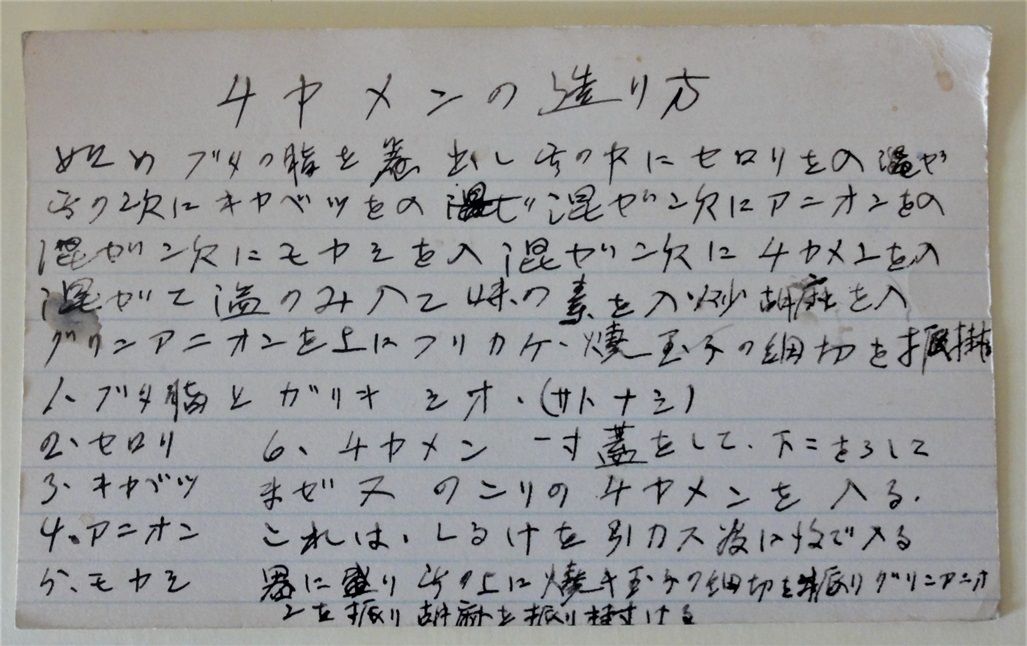 チヤメンの造り方
始めブタの脂を 出し其の中にセロリを入混ぜ
其の次にキヤベツを入混ぜ次にアニオンを入
混ぜ次にモヤシを入混ぜ次にチヤメンを入
混ぜて塩のみ入て味の素を入炒胡麻を入
グリンアニオンを上にフリカケ、焼玉子の細切を振掛
1、ブタ脂とガリキ シオ、(サトナシ)
2、セロリ 6、チヤメン 一寸蓋をして、下ニをろして
3、キヤベツ まぜス のこりのチヤメンを入る、
4、アニオン これは、しるけを引カス 後に 入る
5、モヤシ 器に盛り其の上に焼き玉子の細切を振りグリンアニオ
ンを振り胡麻を振り ける